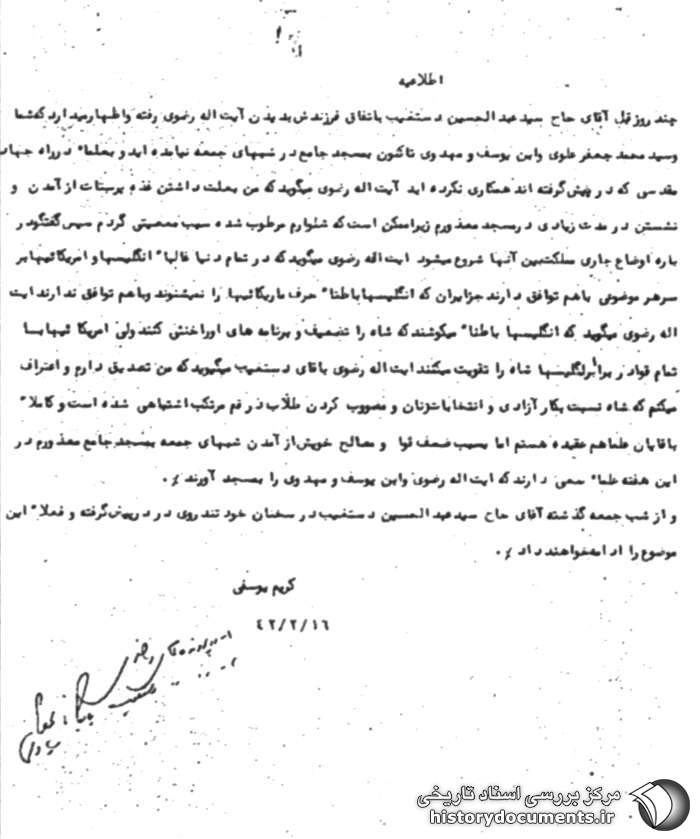 اطلاعیه
چند روز قبل آقای حاج سید عبدالحسین دستغیب باتفاق فرزندش بدیدن آیت اله رضوی رفته و اظهار میدارد که شما
و سید محمد جعفر علوی و ابن یوسف و مهدوی تاکنون بمسجد جامع در شبهای جمعه نیامده اید و بعلماء در راه جهاد
مقدسی که در پیش گرفته اند همکاری نکرده اید آیت اله رضوی میگوید که من بعلت داشتن غده پرستات از آمدن و
نشستن در مدت زیادی در مسجد معذورم زیرا ممکن است که شلوارم مرطوب شده سبب معصیتی گردم سپس گفتگو در
باره اوضاع جاری مملکت بین آنها شروع میشود ایت اله رضوی میگوید که در تمام دنیا غالباء انگلیسها و امریکائیها بر
سر هر موضوعی باهم توافق دارند جز ایران که انگلیسها باطناء حرف امریکائیها را نمیشنوند و باهم توافق ندارند ایت
اله رضوی میگوید که انگلیسها باطناء میکوشند که شاه را تضعیف و برنامه های او را خنثی کنند ولی امریکائیها با
تمام قوا در برابر انگلیسها شاه را تقویت میکنند ایت اله رضوی باقای دستغیب میگوید که من تصدیق دارم و اعتراف
میکنم که شاه نسبت بکار آزادی و انتخابات زنان و مضروب کردن طلاب در قم مرتکب اشتباهی شده است و کاملاء
با قایان علما هم عقیده هستم اما بسبب ضعف قوا و مصالح خویش از آمدن شبهای جمعه بمسجد جامع معذورم در
این هفته علماء سعی دارند که ایت اله رضوی و ابن یوسف و مهدوی را بمسجد آورند ٪.
و از شب جمعه گذشته آقای حاج سید عبدالحسین دستغیب در سخنان خود تندروی در پیش گرفته و فعلاء این
موضوع را ادامه خواهند داد ٪.
کریم یوسفی
۴۲/۲/۱۶
مرکز بررسی اسناد تاریخی
historydocuments.ir